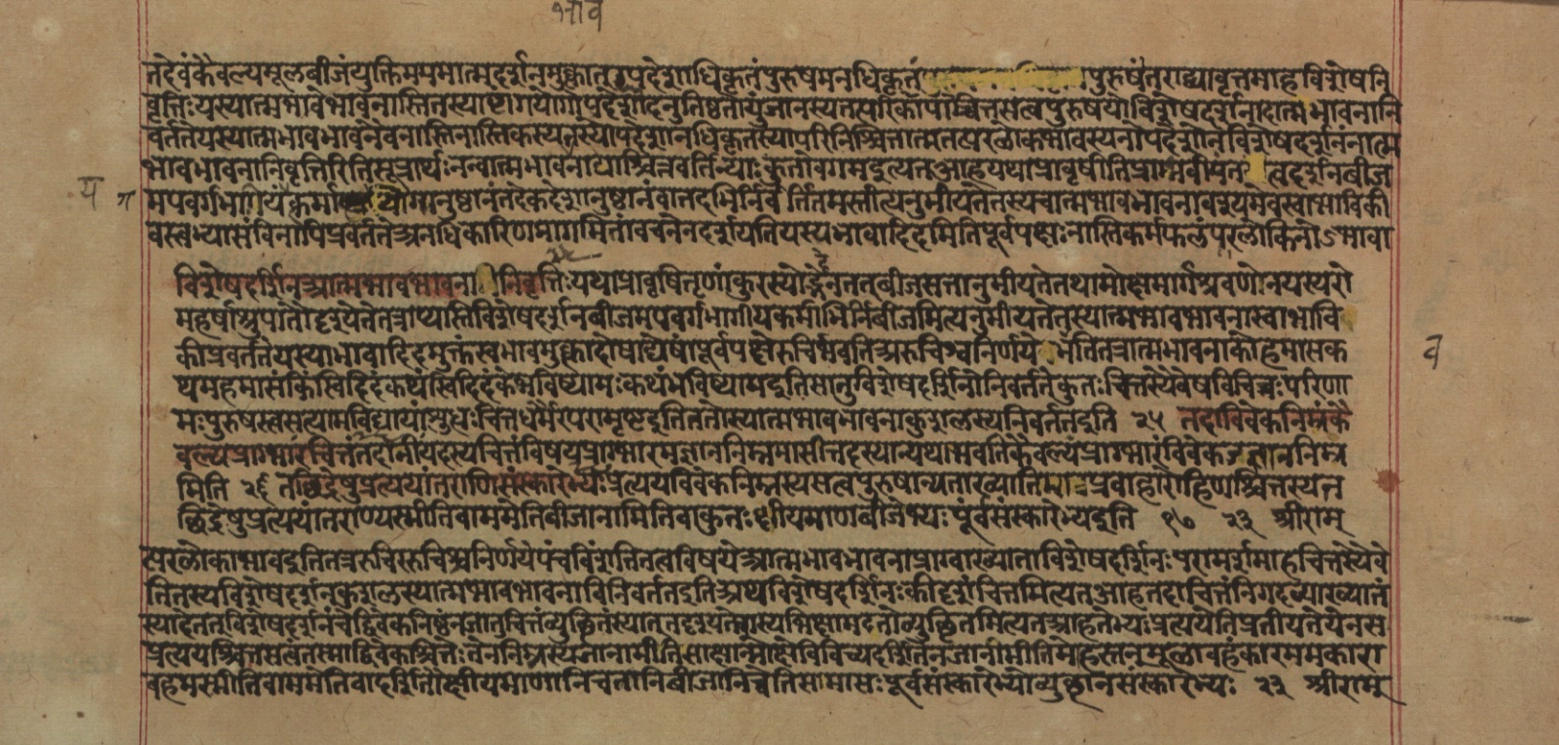 तदेवंकैवल्यमूलबीजंयुक्तिमयमात्मदर्शनमुक्कातदुपदेशाधिकृतंपुरुषमनधिकृतं पुरुषंतराद्व्यावृत्तमाहविशेषनि
वृत्तिःयस्यात्मभावेभावनास्तितस्याष्टांगयोगोपदेशादनुतिष्ठतोयुंजानस्यतत्परिकापाश्चित्तसत्वपुरुषयोर्विशेषदर्शनादात्मभावनानि
वर्ततेयस्यात्मभावभावनैवनास्तिनास्तिकस्यतस्योपदेशानधिकृतस्यापरिनिश्चितात्मतत्परलोकभावस्यनोपदेशोनविशेषदर्शनंनात्म
भावभावनानिवृत्तिरितिसूत्रार्थःनन्वात्मभावनायाश्चित्तवर्तिन्याःकुतोवगमइत्यतआहयथाप्रावृषीतिप्राग्भवीयतत्वदर्शनबीज
मपवर्गभागीयंकर्मा योगानुष्ठानंतदेकदेशानुष्ठानंवातदभिनिर्वर्तितमस्तीत्यनुमीयतेतस्यचात्मभावभावनावश्यमेवस्वाभाविकी
वस्त्वभ्यासंविनापिप्रवर्ततेअनधिकारिणमागमिनांवचनेनदर्शयतियस्यभावादिदमितिपूर्वपक्षःनास्तिकर्मफलंपरलोकिनोऽभावा
विशेषदर्शिनआत्मभावभावनानिवृत्तिःयथाप्रावृषितृणांकुरस्योद्भेदेनतत्बीजसत्तानुमीयतेतथामोक्षमार्गश्रवणेनयस्यरो
महर्षाश्रुपातौदृश्येतेतत्राप्यस्तिविशेषदर्शनबीजमपवर्गभागीयंकर्माभिनिर्बीजमित्यनुमीयतेतस्यात्मभावभावनास्वाभावि
कीप्रवर्ततेयस्याभावादिदमुक्तंस्वभावमुक्कादोषाद्येषांपूर्वपक्षेरुचिर्भवतिअरुचिश्चनिर्णयेभवतितत्रात्मभावनाकोहमासक
थमहमासंकिंस्विदिदंकथंस्विदिदंकेभविष्यामःकथंभविष्यामइतिसातुविशेषदर्शिनोनिवर्ततेकुतःचित्तस्यैवैषविचित्रःपरिणा
मःपुरुषस्त्वसत्यामविद्यायांशुद्धःचित्तधर्मैरपरामृष्टइतिततोस्यात्मभावभावनाकुशलस्यनिवर्ततइति २५ तदाविवेकनिम्नंकै
वल्यप्राग्भारंचित्तंतदानींयदस्यचित्तंविषयप्राग्भारमज्ञाननिम्नमासीत्तदस्यान्यथाभवतिकैवल्यप्राग्भारंविवेकजज्ञाननिम्न
मिति २६ तच्छिद्रेषुप्रत्ययांतराणिसंस्कारेभ्यःप्रत्ययविवेकनिम्नस्यसत्वपुरुषान्यताख्यातिमात्रप्रवाहारोहिणश्चित्तस्यत
च्छिद्रेषुप्रत्ययांतराण्यस्मीतिवाममेतिबीजानामितिवाकुतःक्षीयमाणबीजेभ्यःपूर्वसंस्कारेभ्यइति १७ २३ श्रीराम्
त्परलोकाभावइतितत्ररुचिररुचिश्चनिर्णयेपंचविंशतितत्वविषयेआत्मभावभावनाप्राग्व्याख्याताविशेषदर्शिनःपरामर्शमाहचित्तस्यैवे
तितस्यविशेषदर्शनकुशलस्यात्मभावभावनाविनिवर्ततइतिअथविशेषदर्शिनःकीदृशंचित्तमित्यतआहतदाचित्तंनिगदव्याख्यातं
स्यादेततविशेषदर्शनंचेद्विवेकनिष्ठंनजातुचित्तंव्युत्थितंस्यातदृश्यतेचास्यभिक्षामटतोव्युत्थितमित्यतआहतेभ्यःप्रत्ययेतिप्रतीयतेयेनस
प्रत्ययश्चित्तसत्वंतस्माद्विवेकश्चित्तःतेननिम्नस्यजानामीतिसाक्षान्मोक्षोविविच्यदर्शितेनजानामीतिमोहस्तन्मूलावहंकारममकारा
वहमस्मीतिवाममेतिवादर्शितौक्षीयमाणानिचतानिबीजानिचेतिसमासःपूर्वसंस्कारेभ्योव्युत्थानसंस्कारेभ्यः २३ श्रीराम्